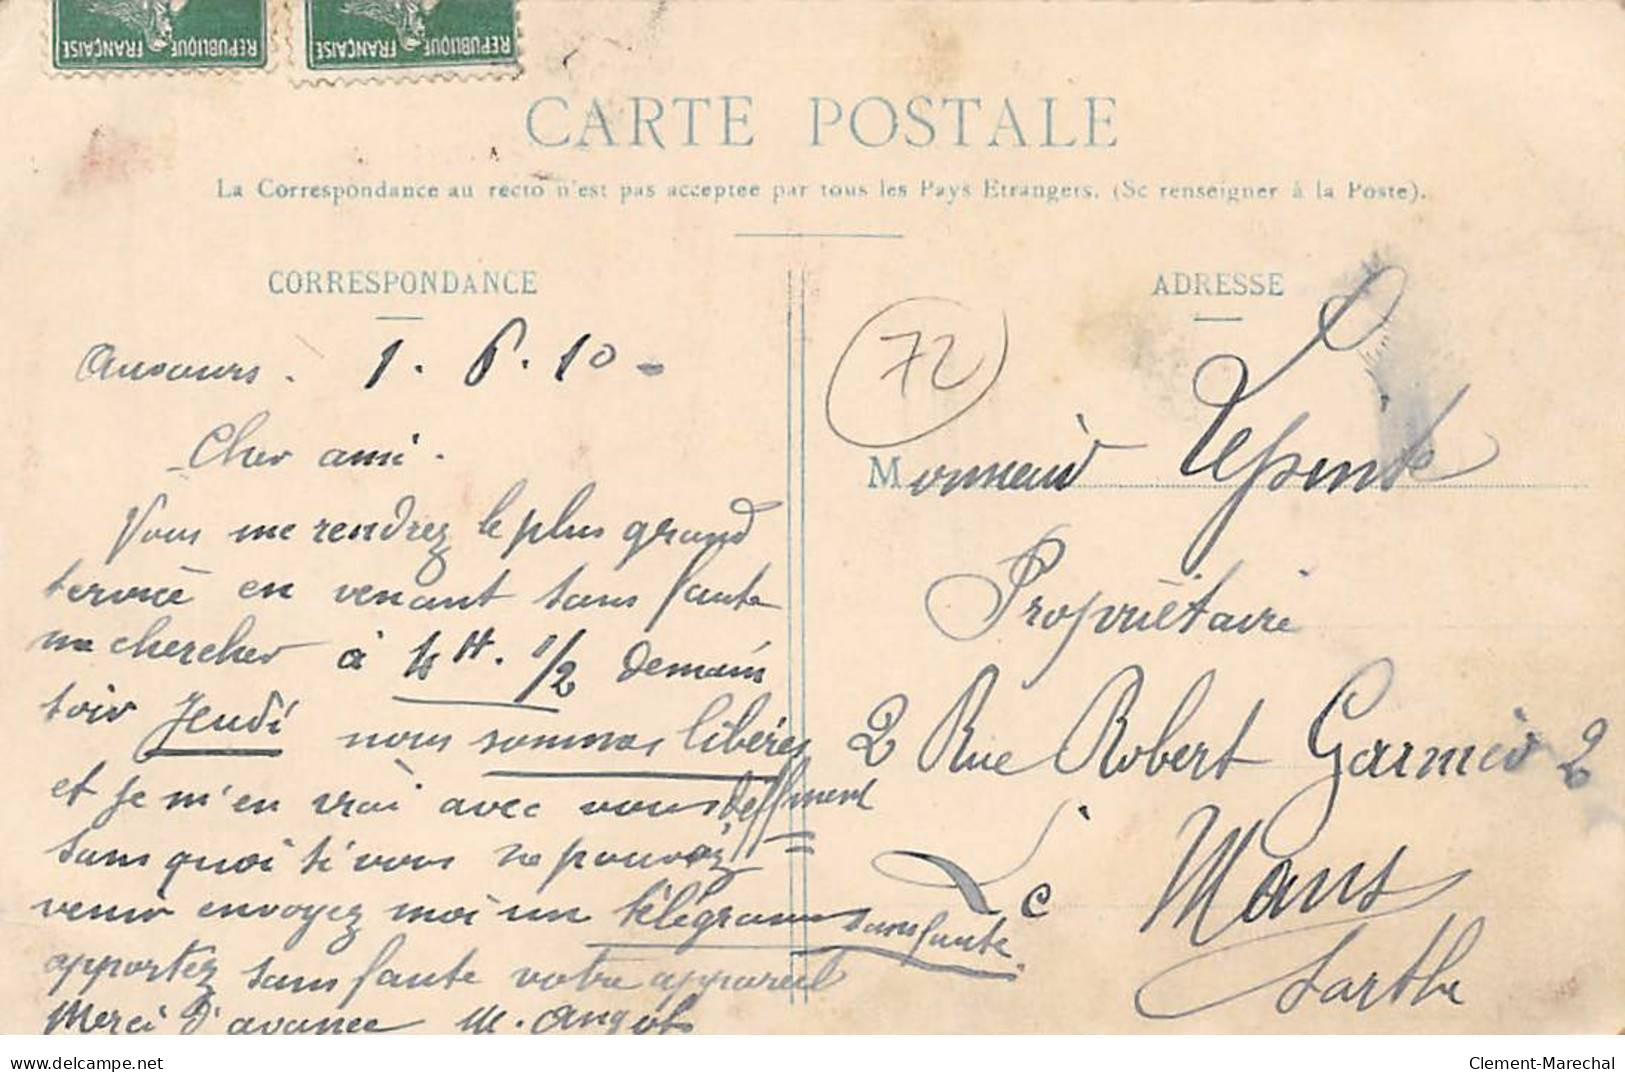 REPUBLIQUE FRANÇAISE
REPUBLIQUE FRANÇAISE
CARTE POSTALE
La Correspondance au recto n'est pas acceptée par tous les Pays Etrangers. (Se renseigner à la Poste).
CORRESPONDANCE
Auvours. 1. 6. 10
Cher ami.
Vous me rendrez le plus grand
service en venant sans faute
me chercher à 4H. 1/2 demain
soir Jeudi nous sommes libérés
et je m'en irai avec vous
sans quoi si vous ne pouvez
venir envoyez moi un télégramme sans faute
apportez sans faute votre appareil
Merci d'avance M. Angot
ADRESSE
72
Monsieur
Propriétaire
2 Rue Robert Garnier 2
Le Mans
Sarthe
www.delcampe.net
Clement-Marechal